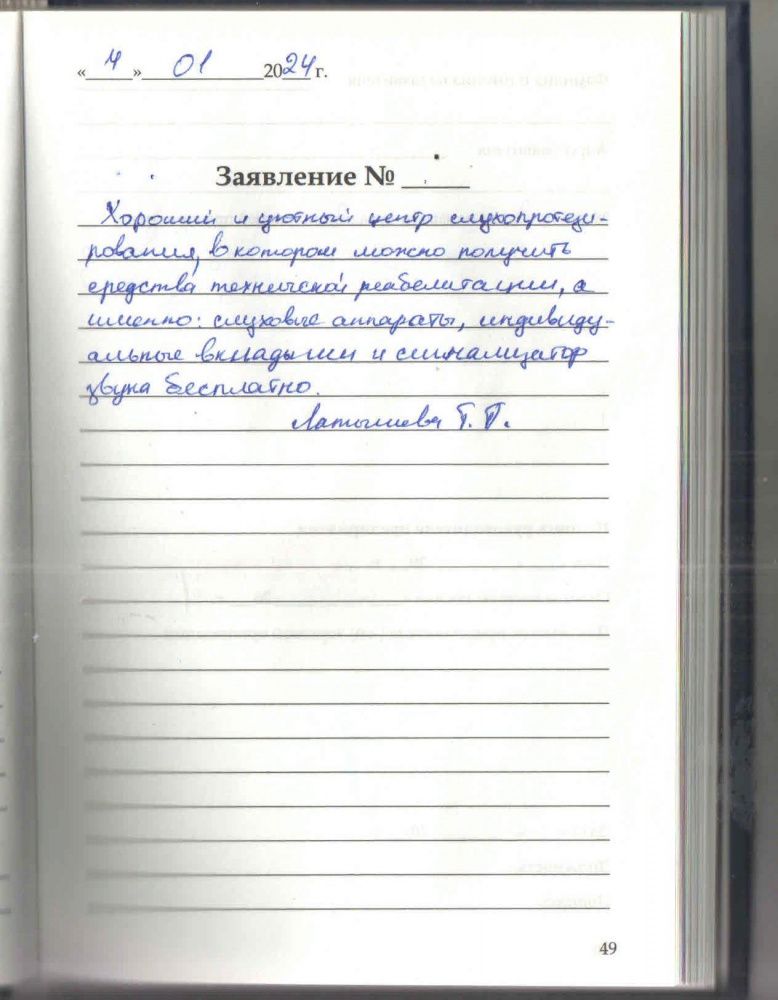 «4» 01 2024 г.
Заявление № ____
Хороший и уютный центр слухопротези-
рования, в котором можно получить
средства технической реабелитации, а
именно: слуховые аппараты, индивиду-
альные вкладыши и сигнализатор
звука бесплатно.
Латышева Т. П.
49